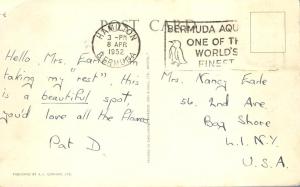 POST CARD
HAMILTON
3 - PM
8 APR
1952
BERMUDA
BERMUDA AQU
ONE OF TH
WORLD'S
FINEST
Hello, Mrs. Earle
taking my "rest". This
is a beautiful spot,
you'd love all the flowers
Pat D.
Mrs. Nancy Earle
56. 2nd Ave.
Bay Shore
L.I. N.Y
U.S.A
PUBLISHED BY